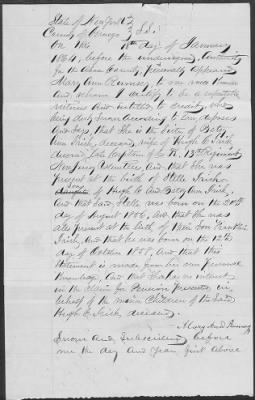 State of New Jersey
County of } S.S.
On this day of January
1864, before the undersigned, authority
for the above County, personally appeared
Mary Ann to me known
and whom I certify to be a reputable
witness and entitled to credit, who
being duly sworn according to law, deposes
and says, that she is the sister of Betsy
Ann Irish, deceased, wife of Hugh C. Irish
deceased, late Captain of Co K. 13th Regiment
New Jersey Volunteers, and that she was
present at the birth of Stella Irish,
of Hugh C. and Betsy Ann Irish,
and that said Stella was born on the 20th
day of August 1856, and that she was
also present at the birth of their son Franklin
Irish, and that he was born on the 12th
day of October 1858, and that this
statement is made from her own personal
knowledge, and that she has no interest
in the claim for Pension presented, in
behalf of the minor children of the said
Hugh C. Irish, deceased.
Mary Ann
Sworn and subscribed before
me the day and year first above